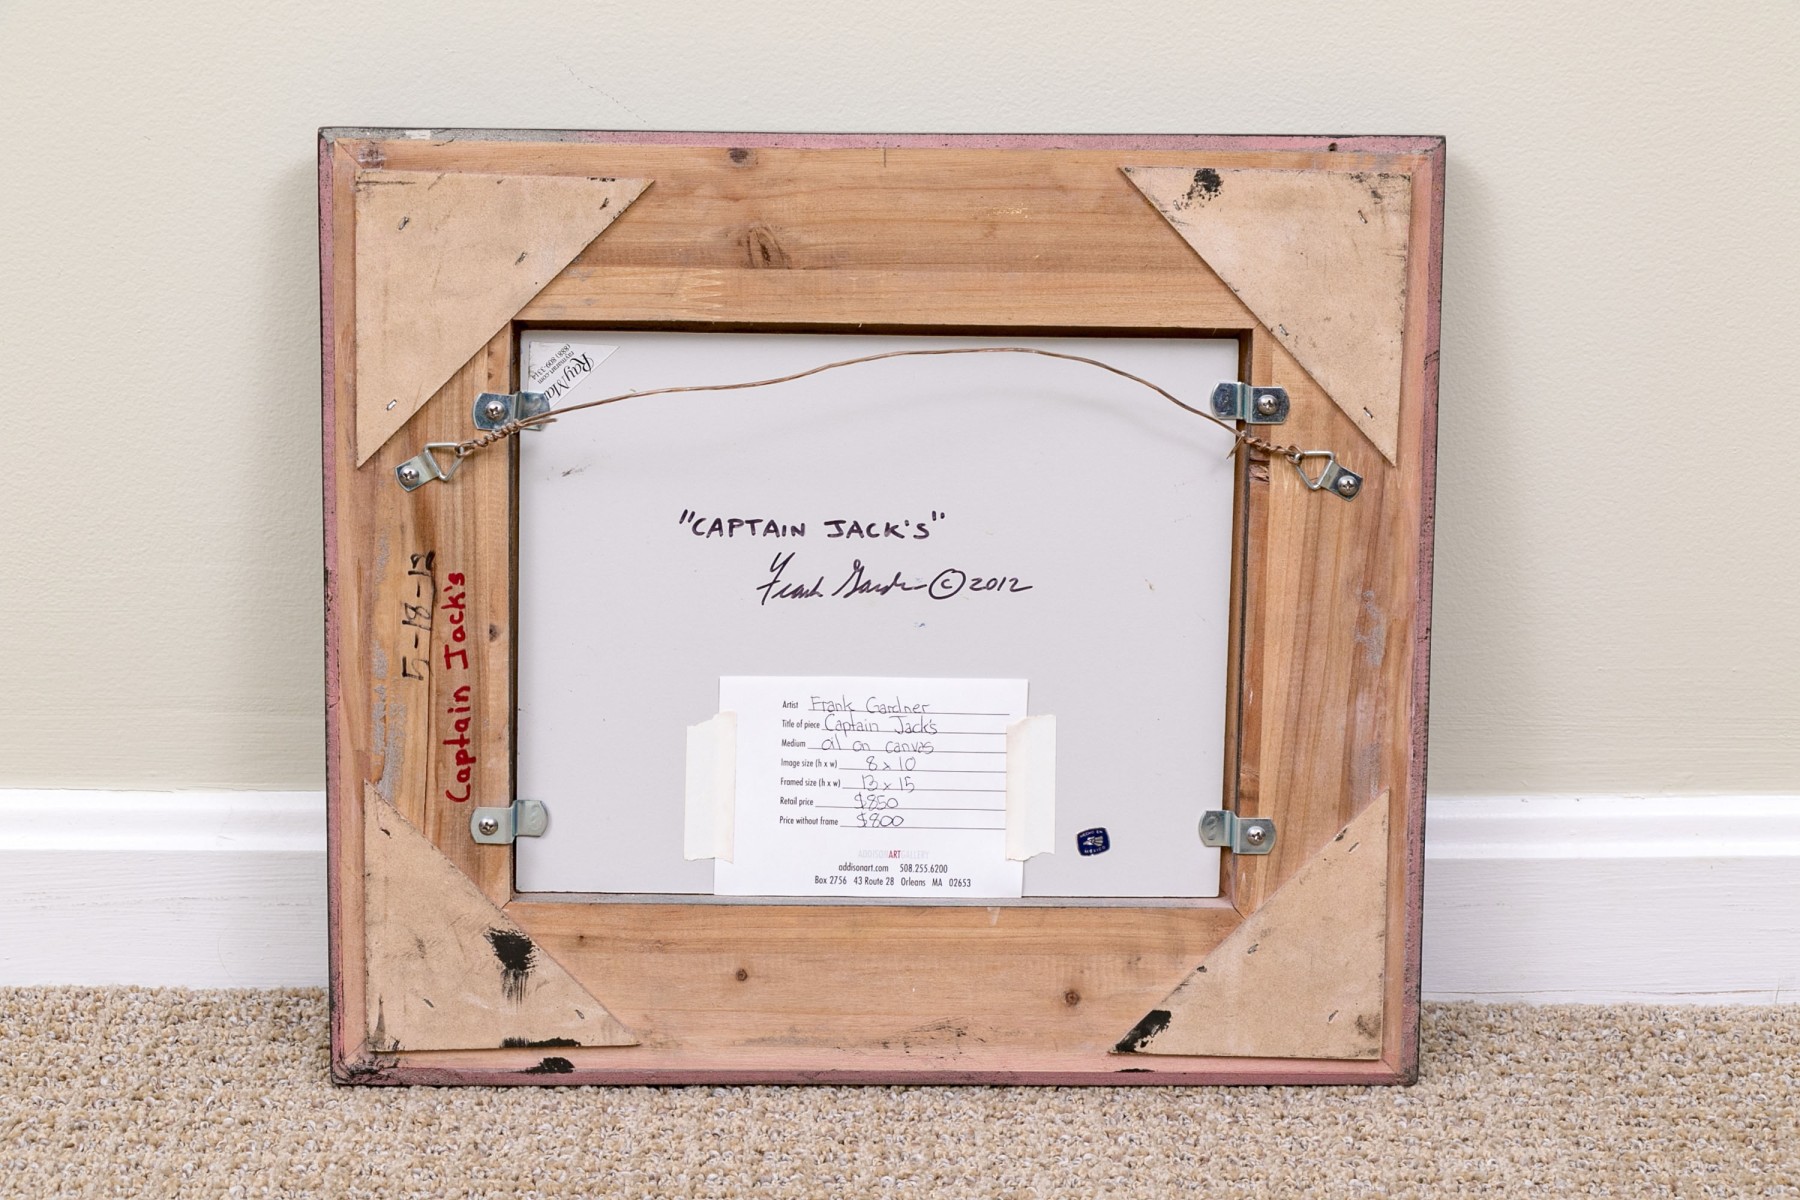 Ray Mar
raymarart.com
(888) 809-3314
"CAPTAIN JACK'S"
Frank Gardner © 2012
5-18-12
Captain Jack's
Artist Frank Gardner
Title of piece Captain Jack's
Medium oil on canvas
Image size (h x w) 8 x 10
Framed size (h x w) 13 x 15
Retail price $850
Price without frame $800
ADDISONARTGALLERY
addisonart.com 508.255.6200
Box 2756 43 Route 28 Orleans MA 02653
HECHO EN
MEXICO